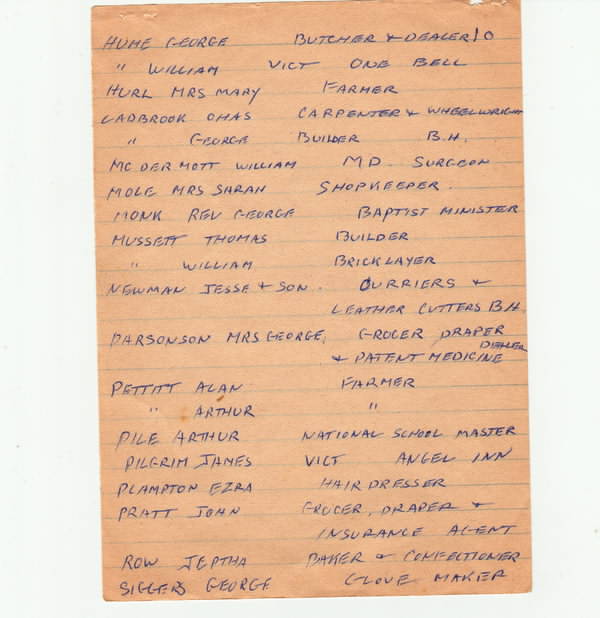 HUME GEORGE BUTCHER & DEALER
" WILLIAM VICT ONE BELL
HURL MRS MARY FARMER
LADBROOK CHAS CARPENTER & WHEELWRIGHT
" GEORGE BUILDER B.H.
MC DERMOTT WILLIAM M.D. SURGEON
MOLE MRS SARAH SHOPKEEPER.
MONK REV GEORGE BAPTIST MINISTER
MUSSETT THOMAS BUILDER
" WILLIAM BRICKLAYER
NEWMAN JESSE & SON. CURRIERS &
LEATHER CUTTERS B.H.
PARSONSON MRS GEORGE, GROCER DRAPER
& PATENT MEDICINE DEALER
PETTITT ALAN FARMER
" ARTHUR "
PILE ARTHUR NATIONAL SCHOOL MASTER
PILGRIM JAMES VICT ANGEL INN
PLAMPTON EZRA HAIR DRESSER
PRATT JOHN GROCER, DRAPER &
INSURANCE AGENT
ROW JEPTHA BAKER & CONFECTIONER
SIGGERS GEORGE GLOVE MAKER